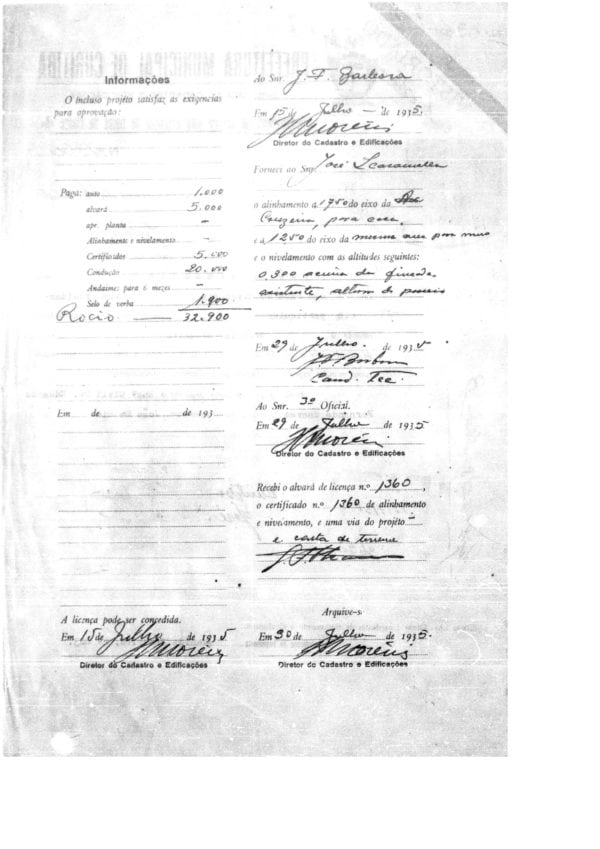 Informações
O incluso projeto satisfaz as exigencias
para aprovação:
Paga: auto 1.000
alvará 5.000
apr. planta –
Alinhamento e nivelamento –
Certificados 5.000
Condução 20.000
Andaime: para 6 mezes –
Selo de verba 1.900
Rocio 32.900
Em de de 193
A licença pode ser concedida.
Em 15 de Julho de 1935
Diretor do Cadastro e Edificações
Ao Snr. J. F.
Em 15 de Julho – de 1935.
Diretor do Cadastro e Edificações
Forneci ao Snr. José
o alinhamento a 1750 do eixo da Rua
Cruzeiro, para casa,
e a 1250 do eixo da mesma rua para muro
e o nivelamento com as altitudes seguintes:
0,300 acima da
existente,
Em 29 de Julho. de 1935
Cand. Tec.
Ao Snr. 3º Oficial.
Em 29 de Julho de 1935
Diretor do Cadastro e Edificações
Recebi o alvará de licença n.º 1360,
o certificado n.º 1360 de alinhamento
e nivelamento, e uma via do projeto –
e carta de terreno
Arquive-s
Em 30 de Julho de 1935.
Diretor do Cadastro e Edificações